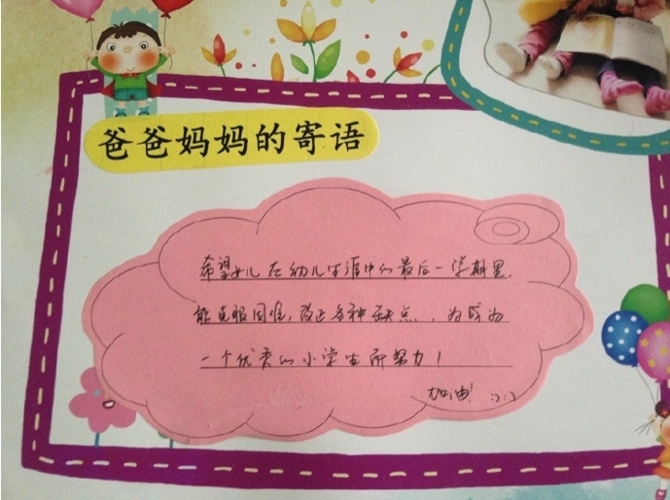 爸爸妈妈的寄语
希望女儿在幼儿生涯中的最后一学期里,
能克服困难,改正各种缺点,为成为
一个优秀的小学生而努力!
加油! :):)